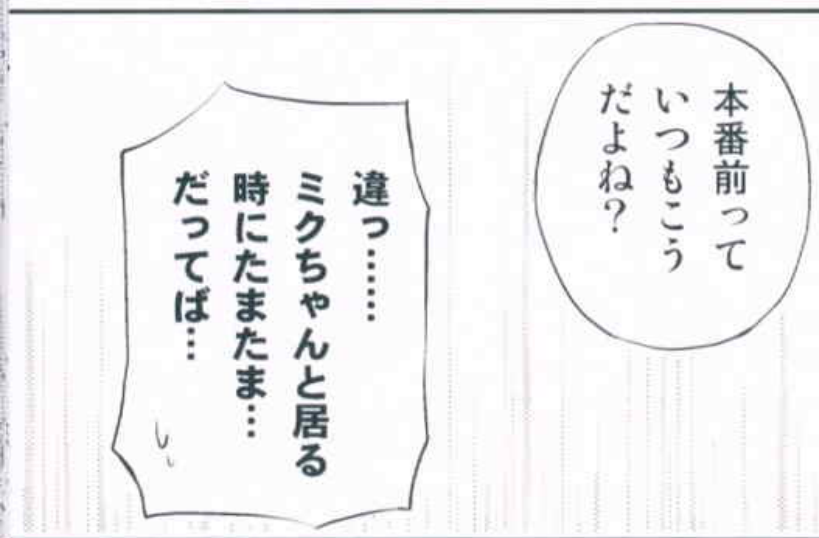 本番前って
いつもこう
だよね？
違っ……
ミクちゃんと居る
時にたまたま…
だってば…